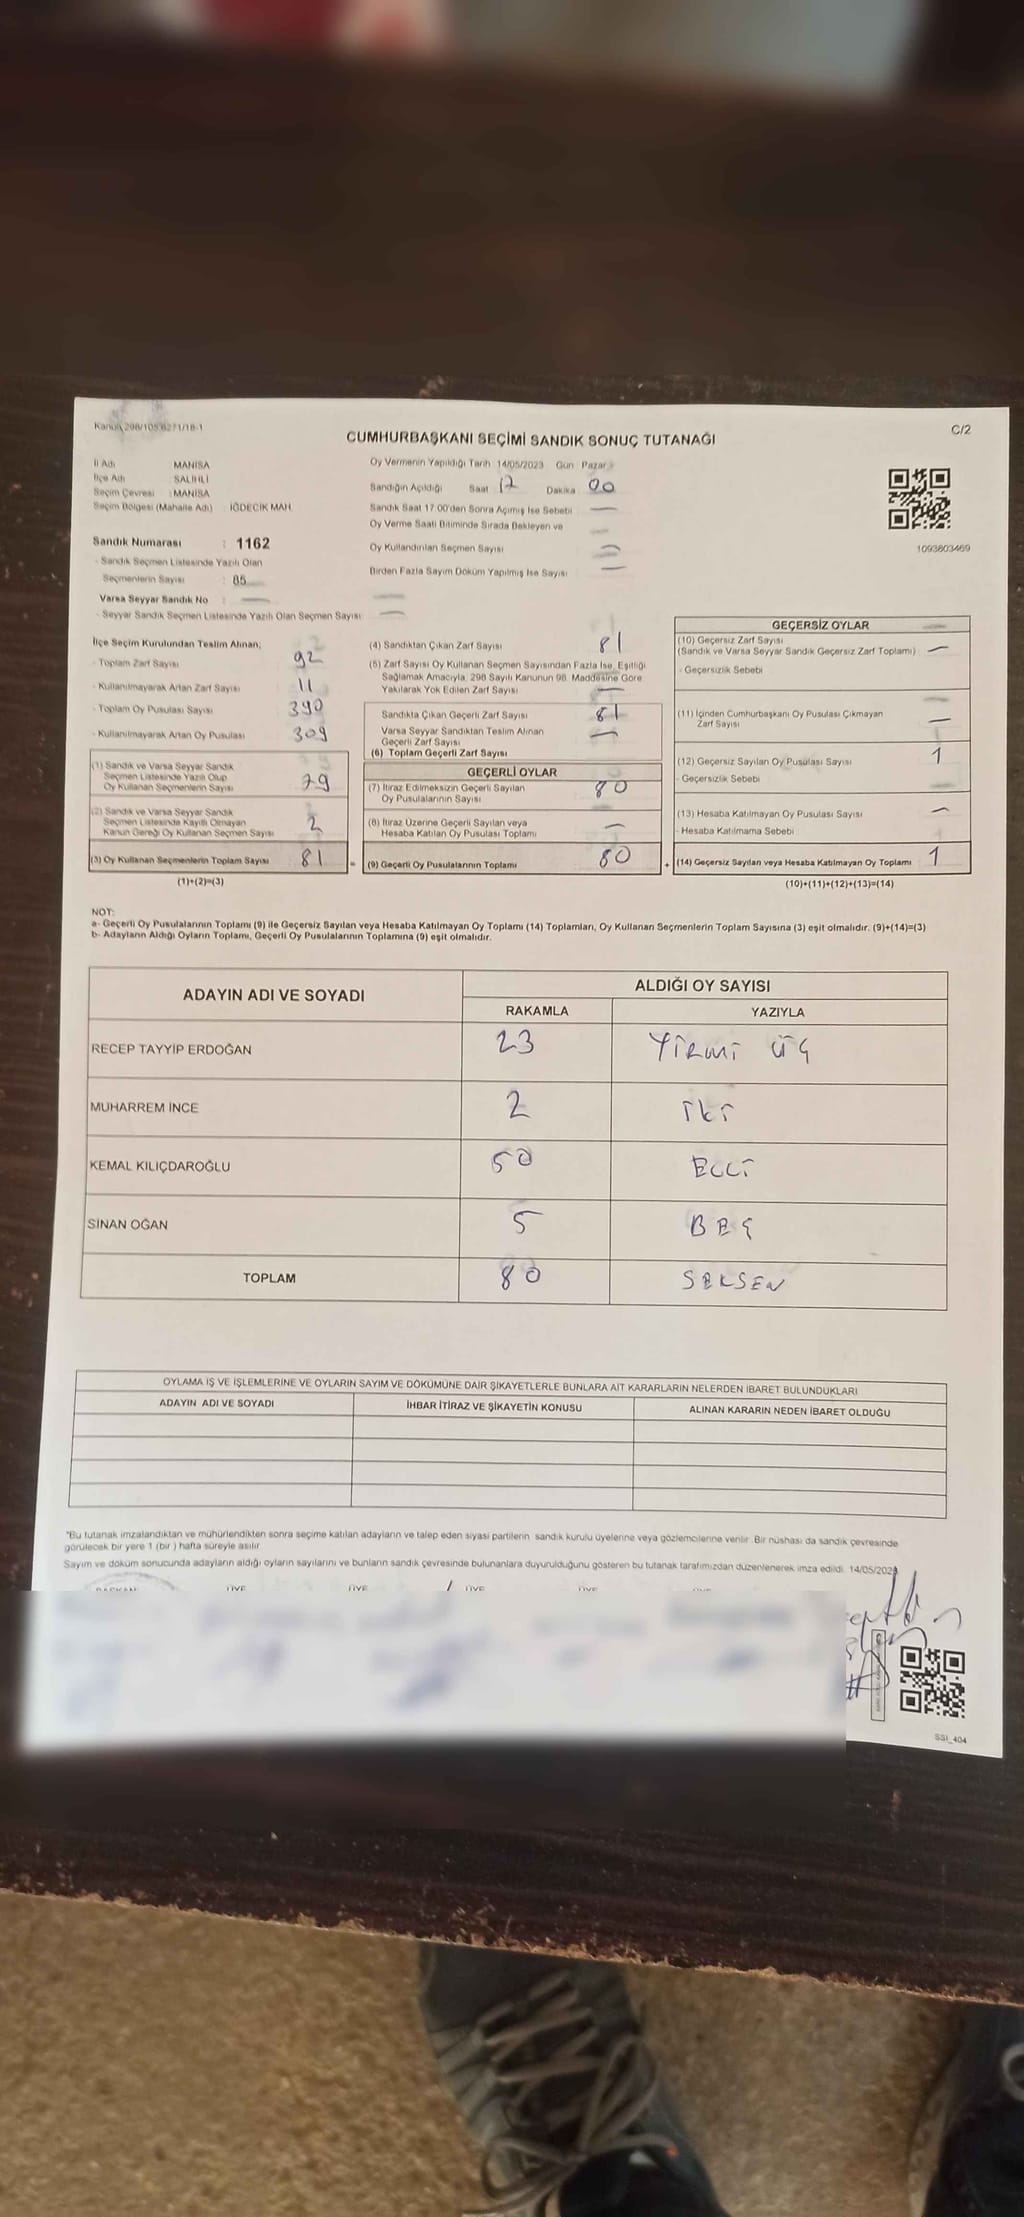 Kanun 298/105 6271/18-1
C/2
CUMHURBAŞKANI SEÇİMİ SANDIK SONUÇ TUTANAĞI
İl Adı MANİSA
İlçe Adı : SALİHLİ
Seçim Çevresi : MANİSA
Seçim Bölgesi (Mahalle Adı) : İĞDECİK MAH.
Oy Vermenin Yapıldığı Tarih 14/05/2023 Gün Pazar
Sandığın Açıldığı Saat 17 Dakika 00
Sandık Saat 17:00'den Sonra Açımış İse Sebebi —
Oy Verme Saati Bitiminde Sırada Bekleyen ve
Oy Kullandırılan Seçmen Sayısı
Birden Fazla Sayım Döküm Yapılmış İse Sayısı
1093803469
Sandık Numarası : 1162
- Sandık Seçmen Listesinde Yazılı Olan
Seçmenlerin Sayısı : 85
Varsa Seyyar Sandık No : —
- Seyyar Sandık Seçmen Listesinde Yazılı Olan Seçmen Sayısı —
İlçe Seçim Kurulundan Teslim Alınan;
- Toplam Zarf Sayısı 92
- Kullanılmayarak Artan Zarf Sayısı 11
- Toplam Oy Pusulası Sayısı 390
- Kullanılmayarak Artan Oy Pusulası 309
(1) Sandık ve Varsa Seyyar Sandık
Seçmen Listesinde Yazılı Olup
Oy Kullanan Seçmenlerin Sayısı 79
(2) Sandık ve Varsa Seyyar Sandık
Seçmen Listesinde Kayıtlı Olmayan
Kanun Gereği Oy Kullanan Seçmen Sayısı 2
(3) Oy Kullanan Seçmenlerin Toplam Sayısı 81
(1)+(2)=(3)
(4) Sandıktan Çıkan Zarf Sayısı 81
(5) Zarf Sayısı Oy Kullanan Seçmen Sayısından Fazla İse, Eşitliği
Sağlamak Amacıyla, 298 Sayılı Kanunun 98. Maddesine Göre
Yakılarak Yok Edilen Zarf Sayısı —
Sandıkta Çıkan Geçerli Zarf Sayısı 81
Varsa Seyyar Sandıktan Teslim Alınan
Geçerli Zarf Sayısı —
(6) Toplam Geçerli Zarf Sayısı
GEÇERLİ OYLAR
(7) İtiraz Edilmeksizin Geçerli Sayılan
Oy Pusulalarının Sayısı 80
(8) İtiraz Üzerine Geçerli Sayılan veya
Hesaba Katılan Oy Pusulası Toplamı —
= (9) Geçerli Oy Pusulalarının Toplamı 80
GEÇERSİZ OYLAR
(10) Geçersiz Zarf Sayısı
(Sandık ve Varsa Seyyar Sandık Geçersiz Zarf Toplamı) —
- Geçersizlik Sebebi
(11) İçinden Cumhurbaşkanı Oy Pusulası Çıkmayan
Zarf Sayısı —
(12) Geçersiz Sayılan Oy Pusulası Sayısı 1
- Geçersizlik Sebebi
(13) Hesaba Katılmayan Oy Pusulası Sayısı —
- Hesaba Katılmama Sebebi
+ (14) Geçersiz Sayılan veya Hesaba Katılmayan Oy Toplamı 1
(10)+(11)+(12)+(13)=(14)
NOT:
a- Geçerli Oy Pusulalarının Toplamı (9) ile Geçersiz Sayılan veya Hesaba Katılmayan Oy Toplamı (14) Toplamları, Oy Kullanan Seçmenlerin Toplam Sayısına (3) eşit olmalıdır. (9)+(14)=(3)
b- Adayların Aldığı Oyların Toplamı, Geçerli Oy Pusulalarının Toplamına (9) eşit olmalıdır.
ADAYIN ADI VE SOYADI ALDIĞI OY SAYISI
RAKAMLA YAZIYLA
RECEP TAYYİP ERDOĞAN 23 YİRMİ ÜÇ
MUHARREM İNCE 2 İKİ
KEMAL KILIÇDAROĞLU 50 ELLİ
SİNAN OĞAN 5 BEŞ
TOPLAM 80 SEKSEN
OYLAMA İŞ VE İŞLEMLERİNE VE OYLARIN SAYIM VE DÖKÜMÜNE DAİR ŞİKAYETLERLE BUNLARA AİT KARARLARIN NELERDEN İBARET BULUNDUKLARI
ADAYIN ADI VE SOYADI İHBAR İTİRAZ VE ŞİKAYETİN KONUSU ALINAN KARARIN NEDEN İBARET OLDUĞU
*Bu tutanak imzalandıktan ve mühürlendikten sonra seçime katılan adayların ve talep eden siyasi partilerin sandık kurulu üyelerine veya gözlemcilerine verilir. Bir nüshası da sandık çevresinde
görülecek bir yere 1 (bir ) hafta süreyle asılır.
Sayım ve döküm sonucunda adayların aldığı oyların sayılarını ve bunların sandık çevresinde bulunanlara duyurulduğunu gösteren bu tutanak tarafımızdan düzenlenerek imza edildi. 14/05/2023
BAŞKAN ÜYE ÜYE ÜYE ÜYE ÜYE
SSI_404